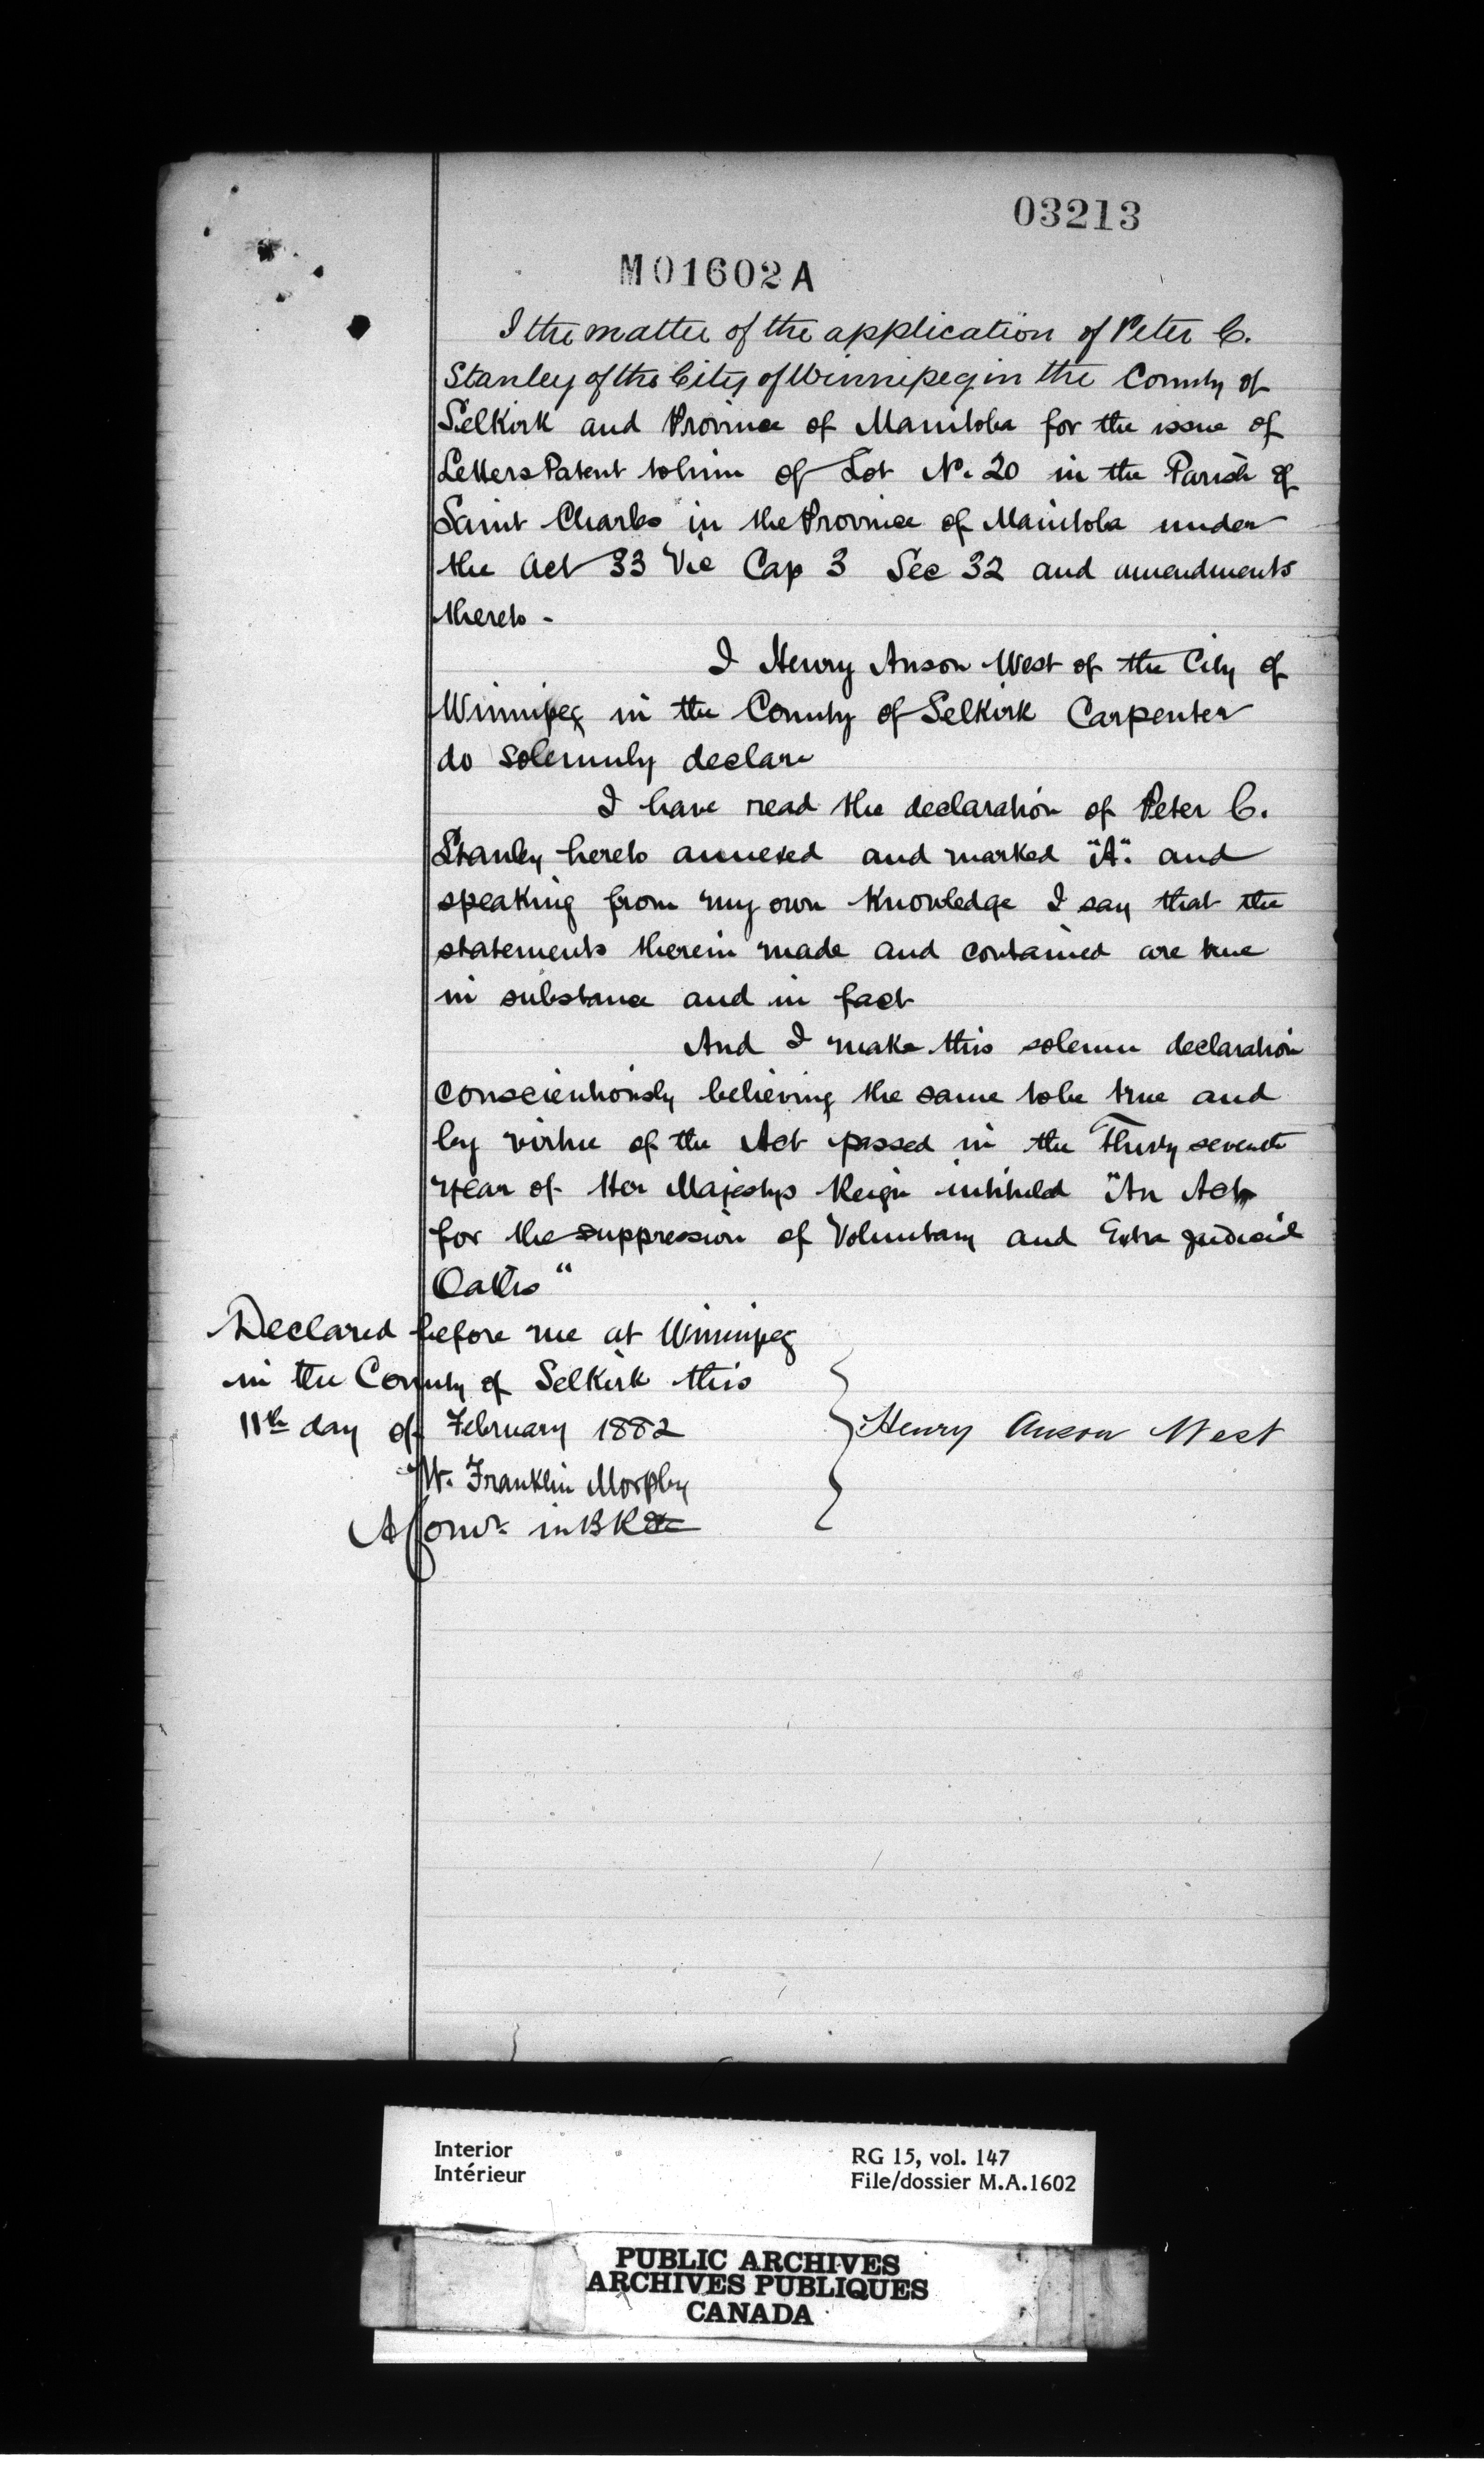 03213
M01602A
I the matter of the application of Peter C.
Stanley of the City of Winnipeg in the County of
Selkirk and Province of Manitoba for the issue of
Letters Patent to him of Lot No. 20 in the Parish of
Saint Charles in the Province of Manitoba under
the Act 33 Vic Cap 3 Sec 32 and amendments
thereto -
I Henry Anson West of the City of
Winnipeg in the County of Selkirk Carpenter
do solemnly declare
I have read the declaration of Peter C.
Stanley hereto annexed and marked "A". and
speaking from my own knowledge I say that the
statements therein made and contained are true
in substance and in fact
And I make this solemn declaration
conscientiously believing the same to be true and
by virtue of the Act passed in the Thirty seventh
year of Her Majestys Reign intituled "An Act
for the suppression of Voluntary and Extra judicial
Oaths"
Declared before me at Winnipeg
in the County of Selkirk this
11th day of February 1882
Henry Anson West
W. Franklin Morphy
A Comr. in BR
Interior
Intérieur
RG 15, vol. 147
File/dossier M.A.1602
PUBLIC ARCHIVES
ARCHIVES PUBLIQUES
CANADA